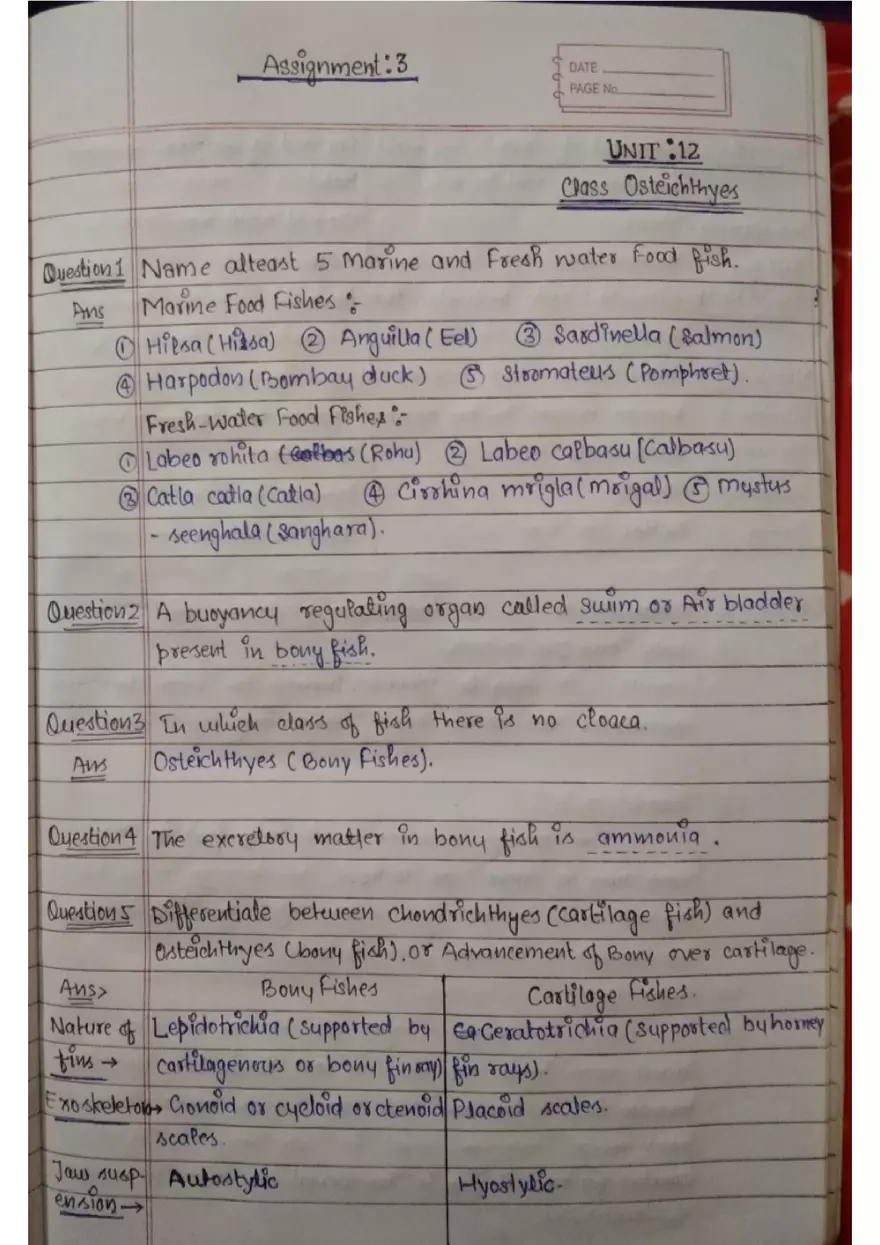 Assignment:3
DATE
PAGE No
UNIT:12
Class Osteichthyes
Question1 Name alteast 5 Marine and Fresh water Food fish.
Ans Marine Food Fishes :-
① Hilsa(Hilsa) ② Anguilla(Eel) ③ Sardinella(Salmon)
④ Harpodon(Bombay duck) ⑤ Stromateus (Pomphret).
Fresh-Water Food Fishes:-
① Labeo rohita (Rohu) ② Labeo calbasu [Calbasu)
③ Catla catla(Catla) ④ Cirrhina mrigla(Mrigal) ⑤ Mystus
- seenghala(Sanghara).
Question2 A buoyancy regulating organ called swim or Air bladder
present in bony fish.
Question3 In which class of fish there is no cloaca.
Ans Osteichthyes (Bony Fishes).
Question4 The excretory matter in bony fish is ammonia.
Question5 Differentiate between Chondrichthyes(Cartilage fish) and
Osteichthyes (bony fish). or Advancement of Bony over cartilage.
Ans> Bony Fishes Cartilage Fishes.
Nature of Lepidotrichia(supported by Ceratotrichia(supported by horney
fins → cartilagenous or bony fin ray) fin rays).
Exoskeleton→ Gonoid or cycloid or ctenoid Placoid scales.
scales.
Jaw susp- Autostylic Hyostylic.
ension→